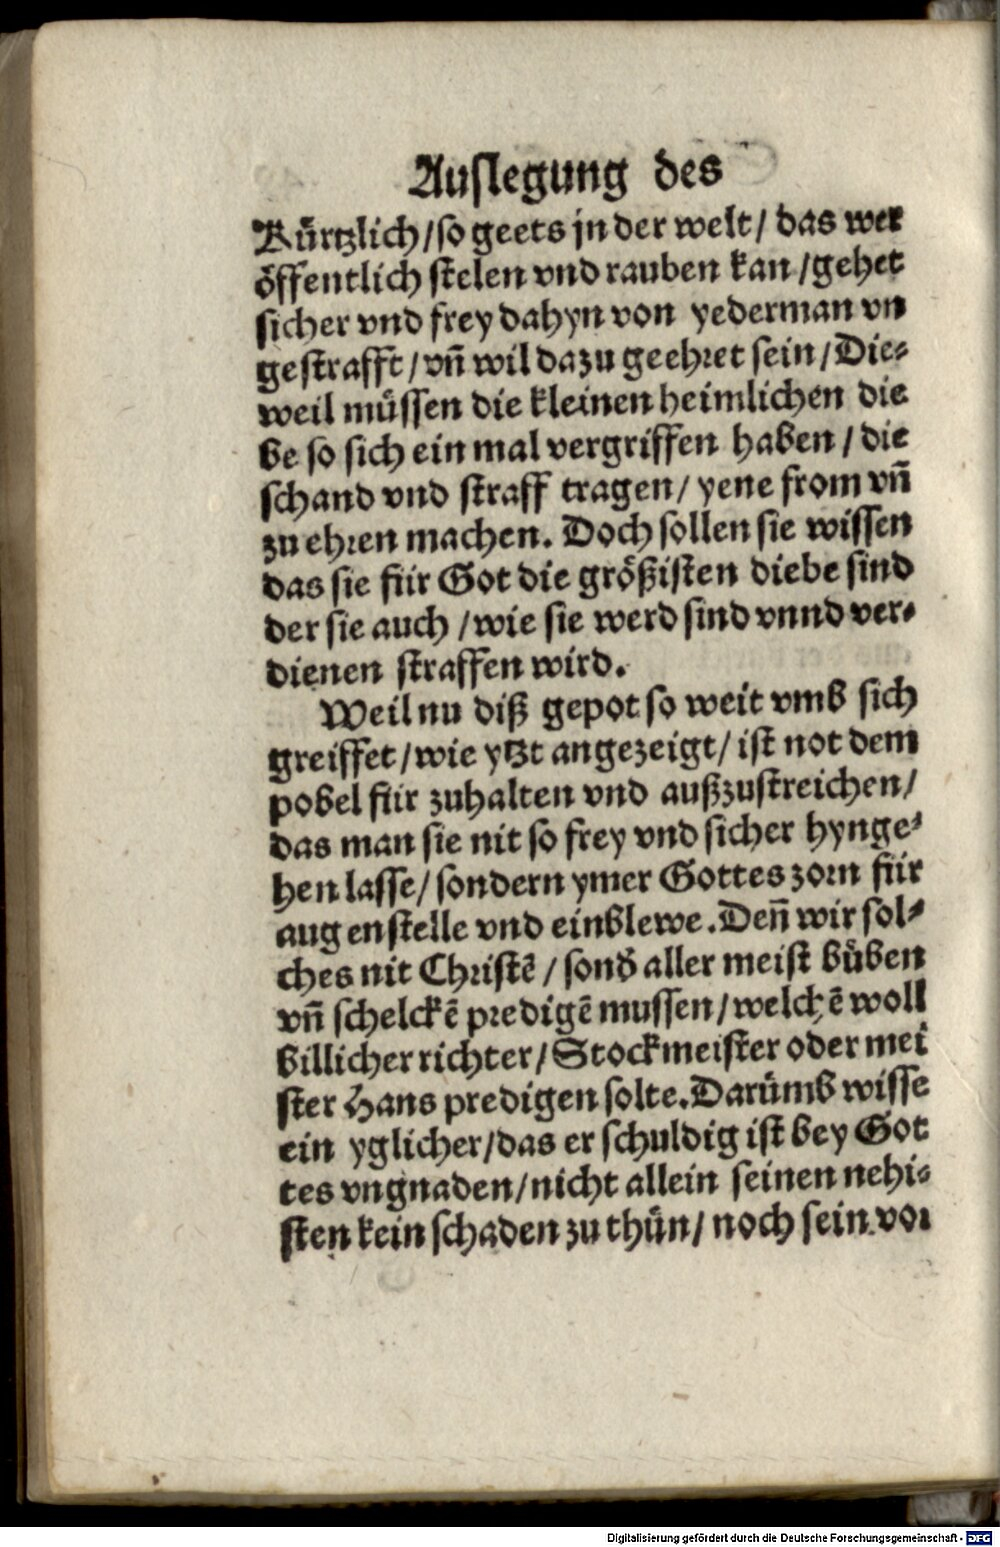 Auſlegung des
Kürtzlich/ſo geets jn der welt/ das wer
öffentlich ſtelen vnd rauben kan/gehet
ſicher vnd frey dahyn von yederman vn
geſtrafft/vñ wil dazu geehret ſein/Die⸗
weil müſſen die kleinen heimlichen die
be ſo ſich ein mal vergriffen haben/die
ſchand vnd ſtraff tragen/yene from vñ
zu ehren machen. Doch ſollen ſie wiſſen
das ſie für Got die größiſten diebe ſind
der ſie auch/wie ſie werd ſind vnnd ver⸗
dienen ſtraffen wird.
Weil nu diß gepot ſo weit vmb ſich
greiffet/wie ytzt angezeigt/iſt not dem
pobel für zuhalten vnd außzuſtreichen/
das man ſie nit ſo frey vnd ſicher hynge⸗
hen laſſe/ſondern ymer Gottes zorn für
augen ſtelle vnd einblewe. Deñ wir ſol⸗
ches nit Chriſtē/ſonď aller meiſt büben
vñ ſchelckē predigē muſſen/welchē woll
billicher richter/Stockmeiſter oder mei
ſter Hans predigen ſolte. Darümb wiſſe
ein yglicher/das er ſchuldig iſt bey Got
tes vngnaden/nicht allein ſeinen nehi⸗
ſten kein ſchaden zu thün/noch ſein vor
Digitalisierung gefördert durch die Deutsche Forschungsgemeinschaft - DFG